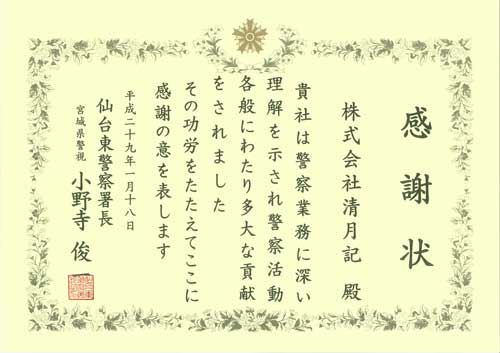 感謝状
株式会社清月記 殿
貴社は警察業務に深い
理解を示され警察活動
各般にわたり多大な貢献
をされました
その功労をたたえてここに
感謝の意を表します
平成二十九年一月十八日
仙台東警察署長
宮城県警視 小野寺 俊一